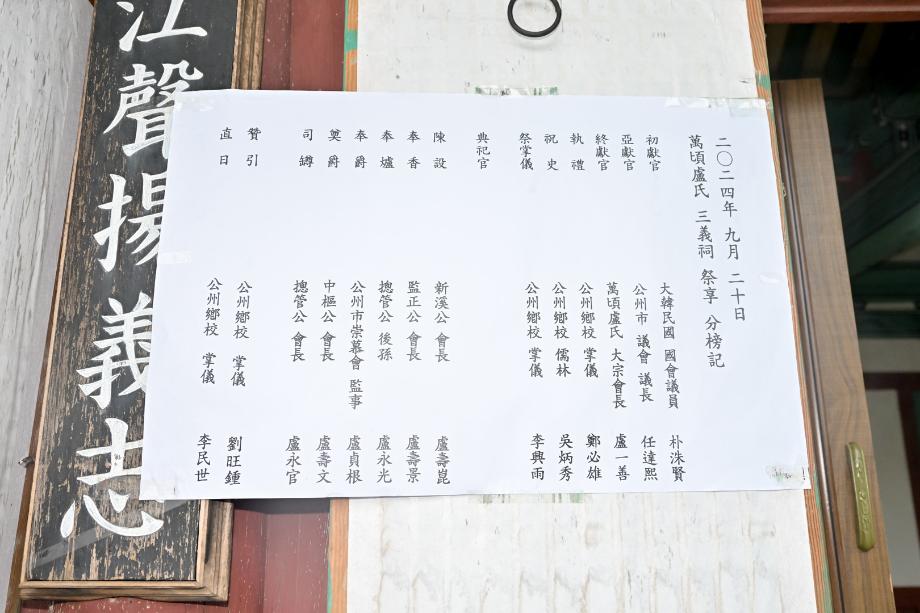 二〇二四年 九月 二十日
萬頃盧氏 三義祠 祭享 分榜記
初獻官 大韓民國 國會議員 朴洙賢
亞獻官 公州市 議會 議長 任達熙
終獻官 萬頃盧氏 大宗會長 盧一善
執禮 公州鄉校 掌儀 鄭必雄
祝史 公州鄉校 儒林 吳炳秀
祭掌儀 公州鄉校 掌儀 李興雨
典祀官
陳設 新溪公 會長 盧壽崑
奉香 監正公 會長 盧壽景
奉爐 摠管公 後孫 盧永光
奉爵 公州市崇慕會 監事 盧貞根
奠爵 中樞公 會長 盧壽文
司罇 摠管公 會長 盧永官
贊引 公州鄉校 掌儀 劉旺鍾
直日 公州鄉校 掌儀 李民世
江聲揚義志